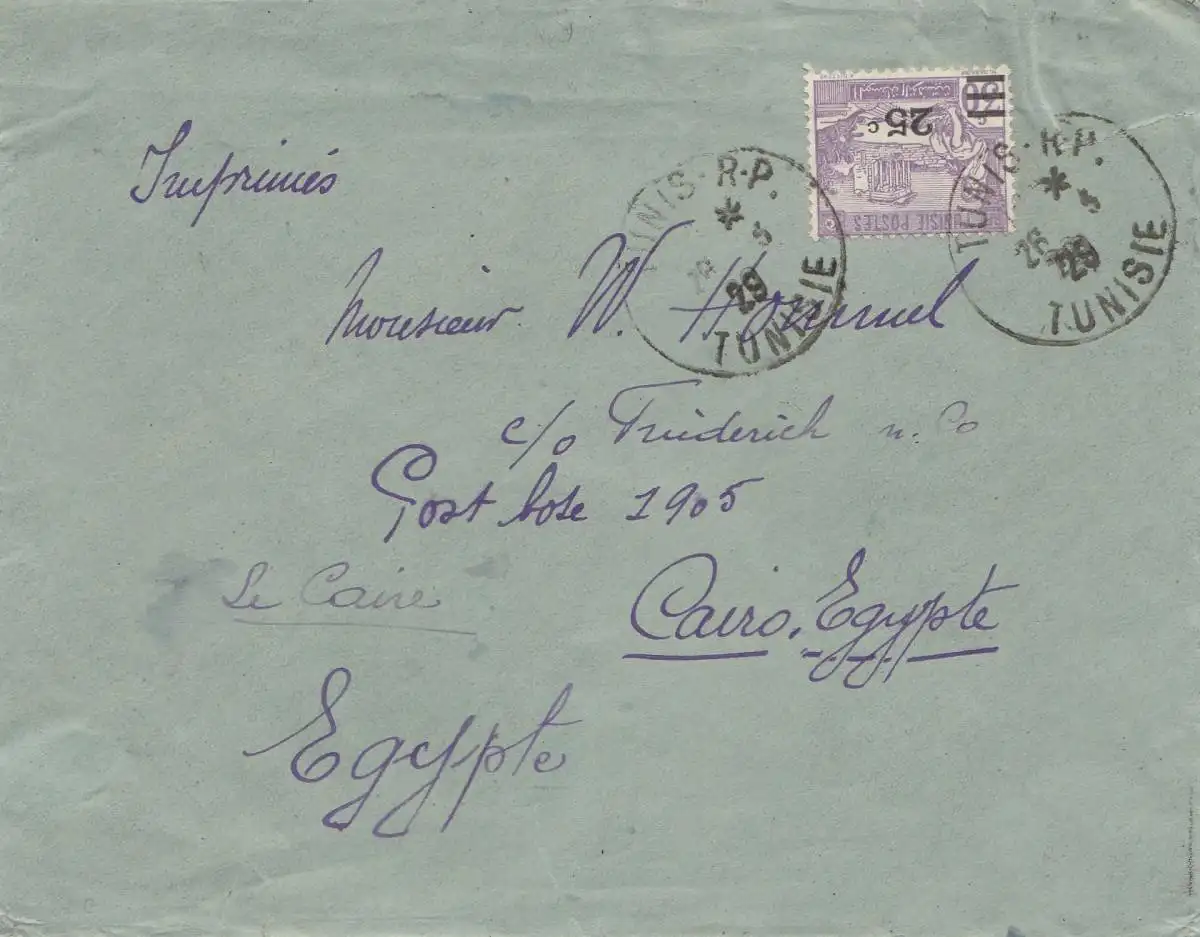 Imprimés
25 c
TUNISIE POSTES
TUNIS-R.P.
* 5
26
29
TUNISIE
TUNIS-R.P.
* 5
26
29
TUNISIE
Monsieur W. Hommel
c/o Friederich u. Co
Post boxe 1905
Le Caire
Cairo, Egypte
Egypte